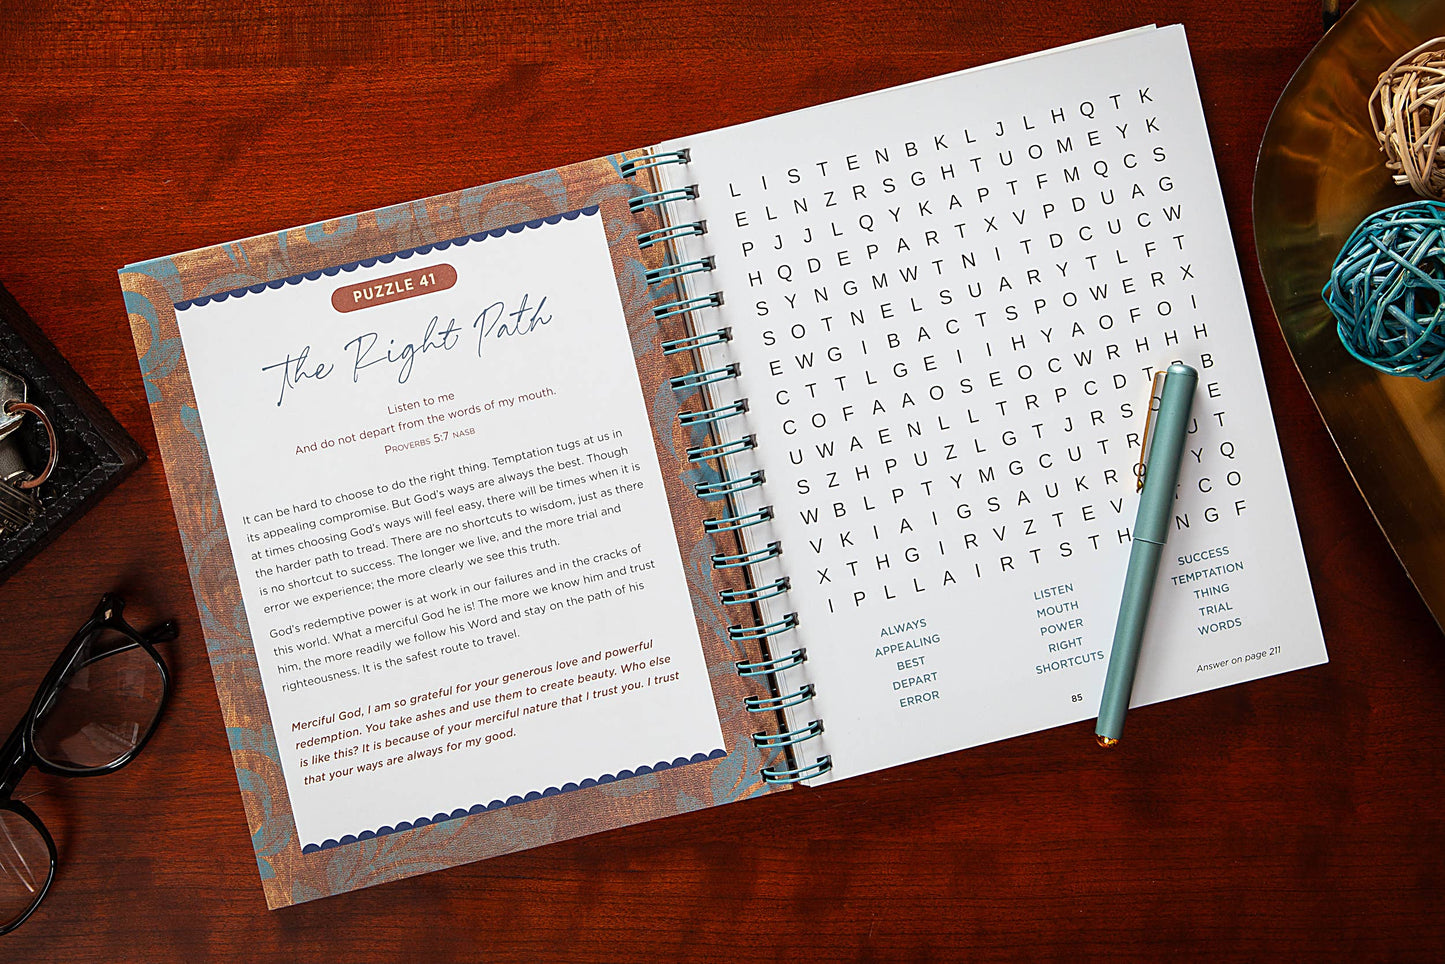 PUZZLE 41
The Right Path
Listen to me
And do not depart from the words of my mouth.
PROVERBS 5:7 NASB
It can be hard to choose to do the right thing. Temptation tugs at us in
its appealing compromise. But God's ways are always the best. Though
at times choosing God's ways will feel easy, there will be times when it is
the harder path to tread. There are no shortcuts to wisdom, just as there
is no shortcut to success. The longer we live, and the more trial and
error we experience; the more clearly we see this truth.
God's redemptive power is at work in our failures and in the cracks of
this world. What a merciful God he is! The more we know him and trust
him, the more readily we follow his Word and stay on the path of his
righteousness. It is the safest route to travel.
Merciful God, I am so grateful for your generous love and powerful
redemption. You take ashes and use them to create beauty. Who else
is like this? It is because of your merciful nature that I trust you. I trust
that your ways are always for my good.
L I S T E N B K L J L H Q T K
E L N Z R S G H T U O M E Y K
P J J L Q Y K A P T F M Q C S
H Q D E P A R T X V P D U A G
S Y N G M W T N I T D C U C W
S O T N E L S U A R Y T L F T
E W G I B A C T S P O W E R X
C T T L G E I I H Y A O F O I
C O F A A O S E O C W R H H H
U W A E N L L T R P C D T B
S Z H P U Z L G T J R S E
W B L P T Y M G C U T R U T
V K I A I G S A U K R Y Q
X T H G I R V Z T E V C O
I P L L A I R T S T H N G F
ALWAYS
APPEALING
BEST
DEPART
ERROR
LISTEN
MOUTH
POWER
RIGHT
SHORTCUTS
SUCCESS
TEMPTATION
THING
TRIAL
WORDS
Answer on page 211
85